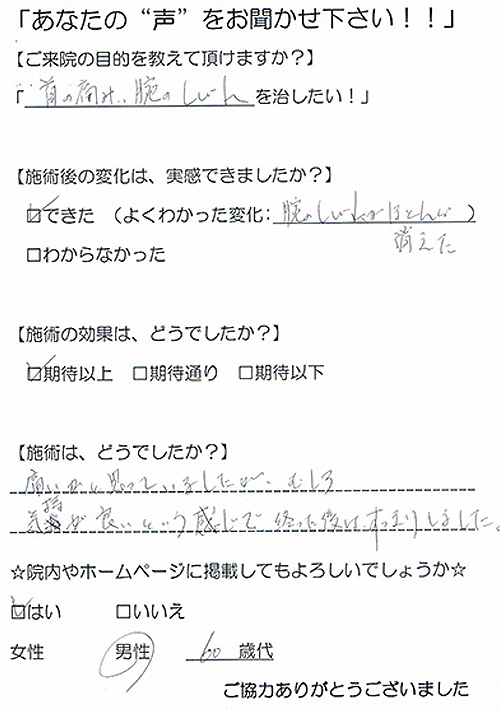 「あなたの“声”をお聞かせ下さい！！」
【ご来院の目的を教えて頂けますか？】
「首の痛み、腕のしびれを治したい！」
【施術後の変化は、実感できましたか？】
☑できた （よくわかった変化：腕のしびれがほとんど）
消えた
□わからなかった
【施術の効果は、どうでしたか？】
☑期待以上 □期待通り □期待以下
【施術は、どうでしたか？】
痛いかと思っていましたが、むしろ
気持が良いという感じで終った後はすっきりしました。
☆院内やホームページに掲載してもよろしいでしょうか☆
☑はい □いいえ
女性 男性 60歳代
ご協力ありがとうございました